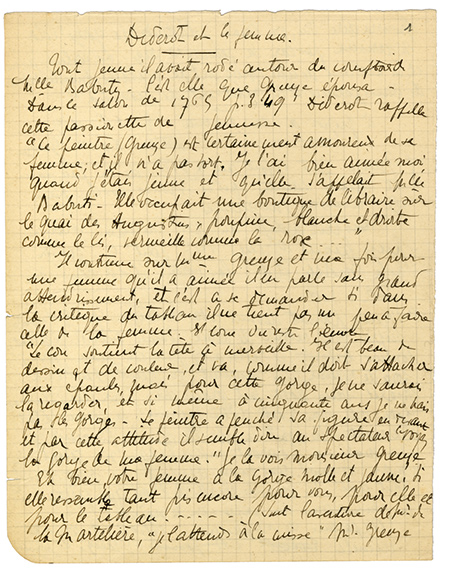 1
Diderot et la femme.
Tout jeune il avait rodé autour du comptoir de
Mlle Babuty - C'est elle que Greuze épousa -
Dans le salon de 1765 p. 349 Diderot rappelle
cette passionnette de jeunesse.
"Ce peintre (Greuze) est certainement amoureux de sa
femme, et il n'a pas tort, Je l'ai bien aimée moi
quand j'étais jeune et qu'elle s'appelait Mlle
Babuti - Elle occupait une boutique de libraire sur
le quai des Augustins, poupine, blanche et droite
comme le lis, vermeille comme la rose ... "
Il continue sur Mme Greuze et ma fois pour
une femme qu'il a aimée il en parle sans grand
attendrissement, et c'est à se demander si dans
la critique du tableau il ne tient pas un peu à faire
celle de la femme. Et
"Le cou soutient la tête à merveille. Il est beau de
dessin et de couleur, et va, comme il doit s'attacher
aux épaules, mais pour cette gorge, je ne saurais
la regarder, et si même à cinquante ans je ne hais
pas les gorges - Le peintre a penché sa figure en avant
et par cette attitude il semble dire au spectateur "Voyez
la gorge de ma femme." Je la vois monsieur Greuze
Eh bien, votre femme a la gorge molle et jaune, si
elle ressemble tant pis encore pour vous, pour elle et
pour le tableau. - - - - - -
la Martelière, "je l'attends à la" Mr. Greuze